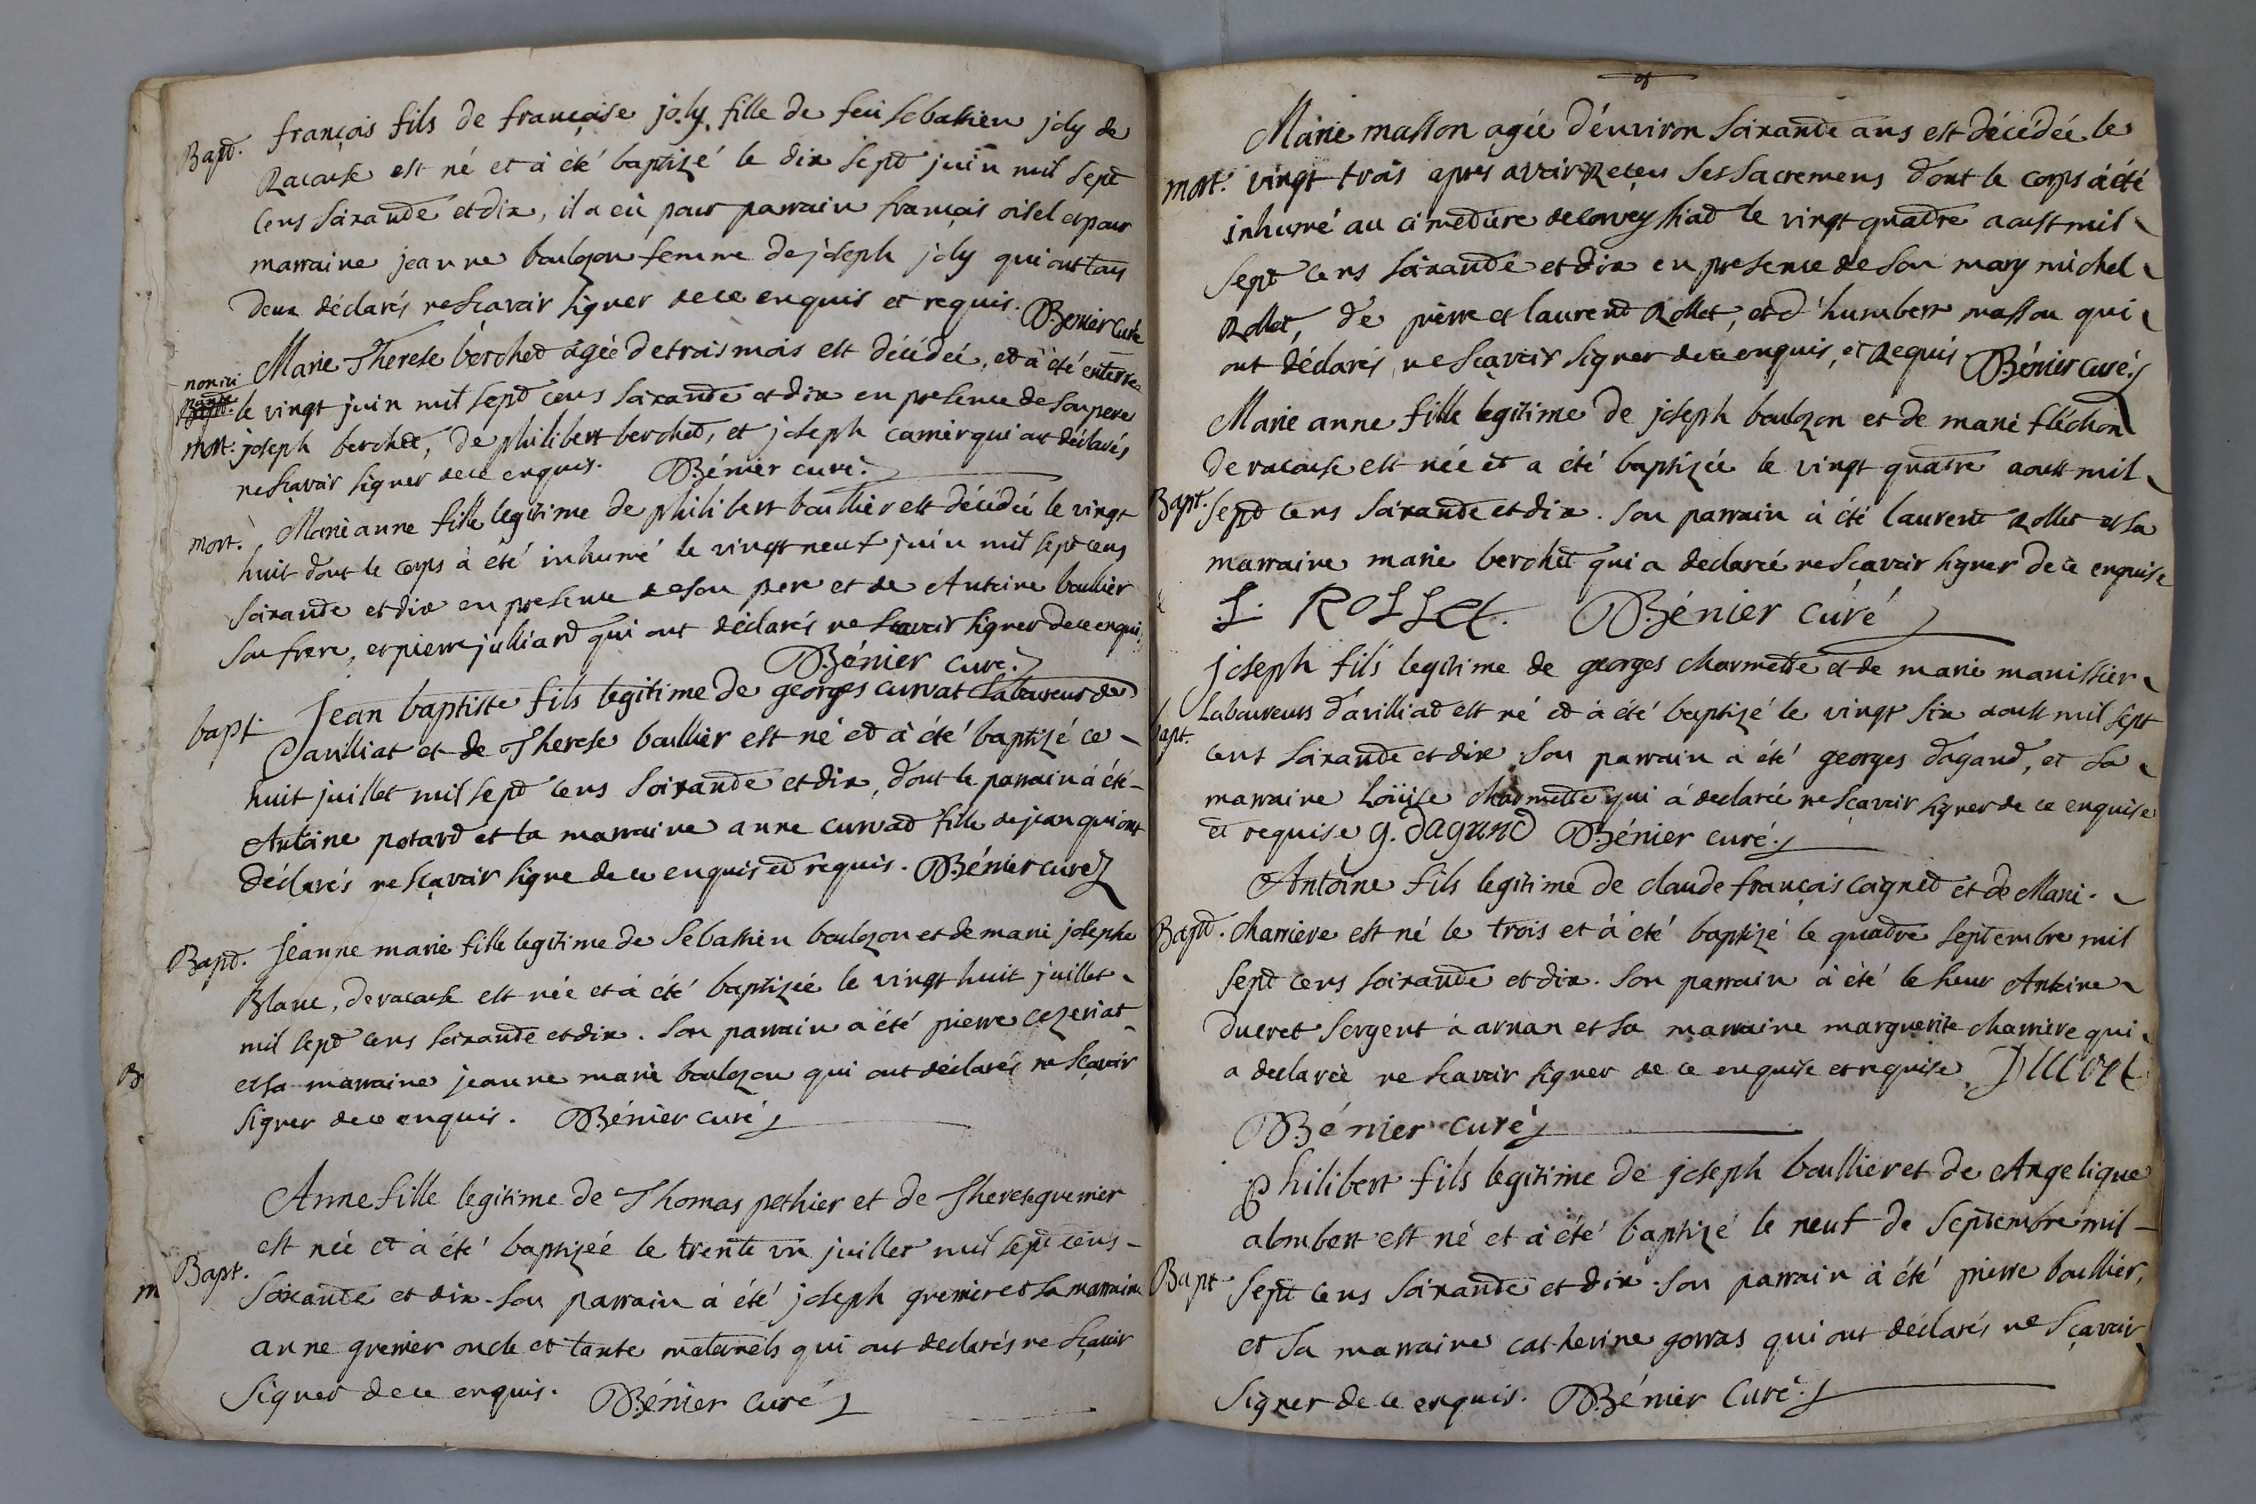 Bapt. françois fils de françoise joly fille de feu sebastien joly de
Racouse est né et à été baptizé le dix sept juin mil sept
cens soixante et dix, il a eü pour parrain françois oisel et pour
marraine jeanne boulozon femme de joseph joly qui ont tous
deux déclarés ne scavoir signer de ce enquis et requis. Bénier curé
Marie Therese berchet agée de trois mois est décédeé, et à été enterré
non ici
le vingt juin mil sept cens soixante et dix en presence de son pere
mort. joseph berchet, de philibert berchet, et joseph camier qui ont déclarés
ne sçavoir signer de ce enquis. Bénier curé.
mort. Marie anne fille legitime de philibert boullier est décédée le vingt
huit dont le corps à été inhumé le vingt neuf juin mil sept cens
soixante et dix en presence de son pere et de Antoine boullier
son frere, et pierre julliard qui ont déclarés ne scavoir signer de ce enquis
Bénier curé.
bapt. Jean baptiste fils legitime de georges curvat Laboureur de
Saulliat et de Therese boullier est né et à été baptizé ce
huit juillet mil sept cens soixante et dix, dont le parrain à été
Antoine potard et la marraine anne curvat fille de jean qui ont
déclarés ne sçavoir signe de ce enquis et requis. Bénier curé
Bapt. Jeanne marie fille legitime de Sebastien boulozon et de marie josephe
Blanc, de racouse est née et à été baptizée le vingt huit juillet
mil sept cens soixante et dix. Son parrain a été pierre cezeriat
B
et sa marraine jeanne marie boulozon qui ont déclarés ne sçavoir
signer de ce enquis. Bénier curé
Anne fille legitime de Thomas pethier et de Therese grenier
est née et à été baptizeé le trente un juillet mil sept cens
Bapt.
m
soixante et dix. son parrain à été joseph grenier et sa marraine
anne grenier oncle et tante maternels qui ont declarés ne sçavoir
signer de ce enquis. Bénier curé
Marie masson agée d'environ soixante ans est décédée le
mort. vingt trois apres avoir Reçeu ses sacremens dont le corps à été
inhumé au cimetiere de corveyssiat le vingt quatre aoust mil
sept cens soixante et dix en presence de son mary michel
Rollet, de pierre et laurent Rollet, et d'humbert masson qui
ont déclarés ne sçavoir signer de ce enquis, et Requis Bénier curé.
Marie anne fille legitime de joseph boulozon et de marie fléchon
de racouse est née et a été baptizée le vingt quatre aoust mil
Bapt. Sept cens soixante et dix. son parrain à été laurent Rollet et sa
marraine marie berchet qui a declareé ne sçavoir signer de ce enquise
L. ROLLet. Bénier curé
joseph fils legitime de georges charmette et de marie manissier
Laboureurs d'avilliat est né et à été baptizé le vingt six aoust mil sept
bapt.
cens soixante et dix. Son parrain à été georges dagand, et sa
marraine Loüise charmette qui á declarée ne sçavoir signer de ce enquise
et requise g. dagand Bénier curé.
Antoine fils legitime de claude françois coignet et de Marie
Bapt. charriere est né le trois et à été baptizé le quatre septembre mil
sept cens soixante et dix. Son parrain à été le sieur Antoine
ducret sergent à arnan et sa marraine marguerite charriere qui
a declareé ne scavoir signer de ce enquise et requise. Ducret
Bénier curé
Philibert fils legitime de joseph boullier et de Angelique
alombert est né et à été baptizé le neuf de septembre mil
Bapt sept cens soixante et dix. son parrain à été pierre boullier,
et sa marraine catherine gorras qui ont déclarés ne sçavoir
signer de ce enquis. Bénier curé.